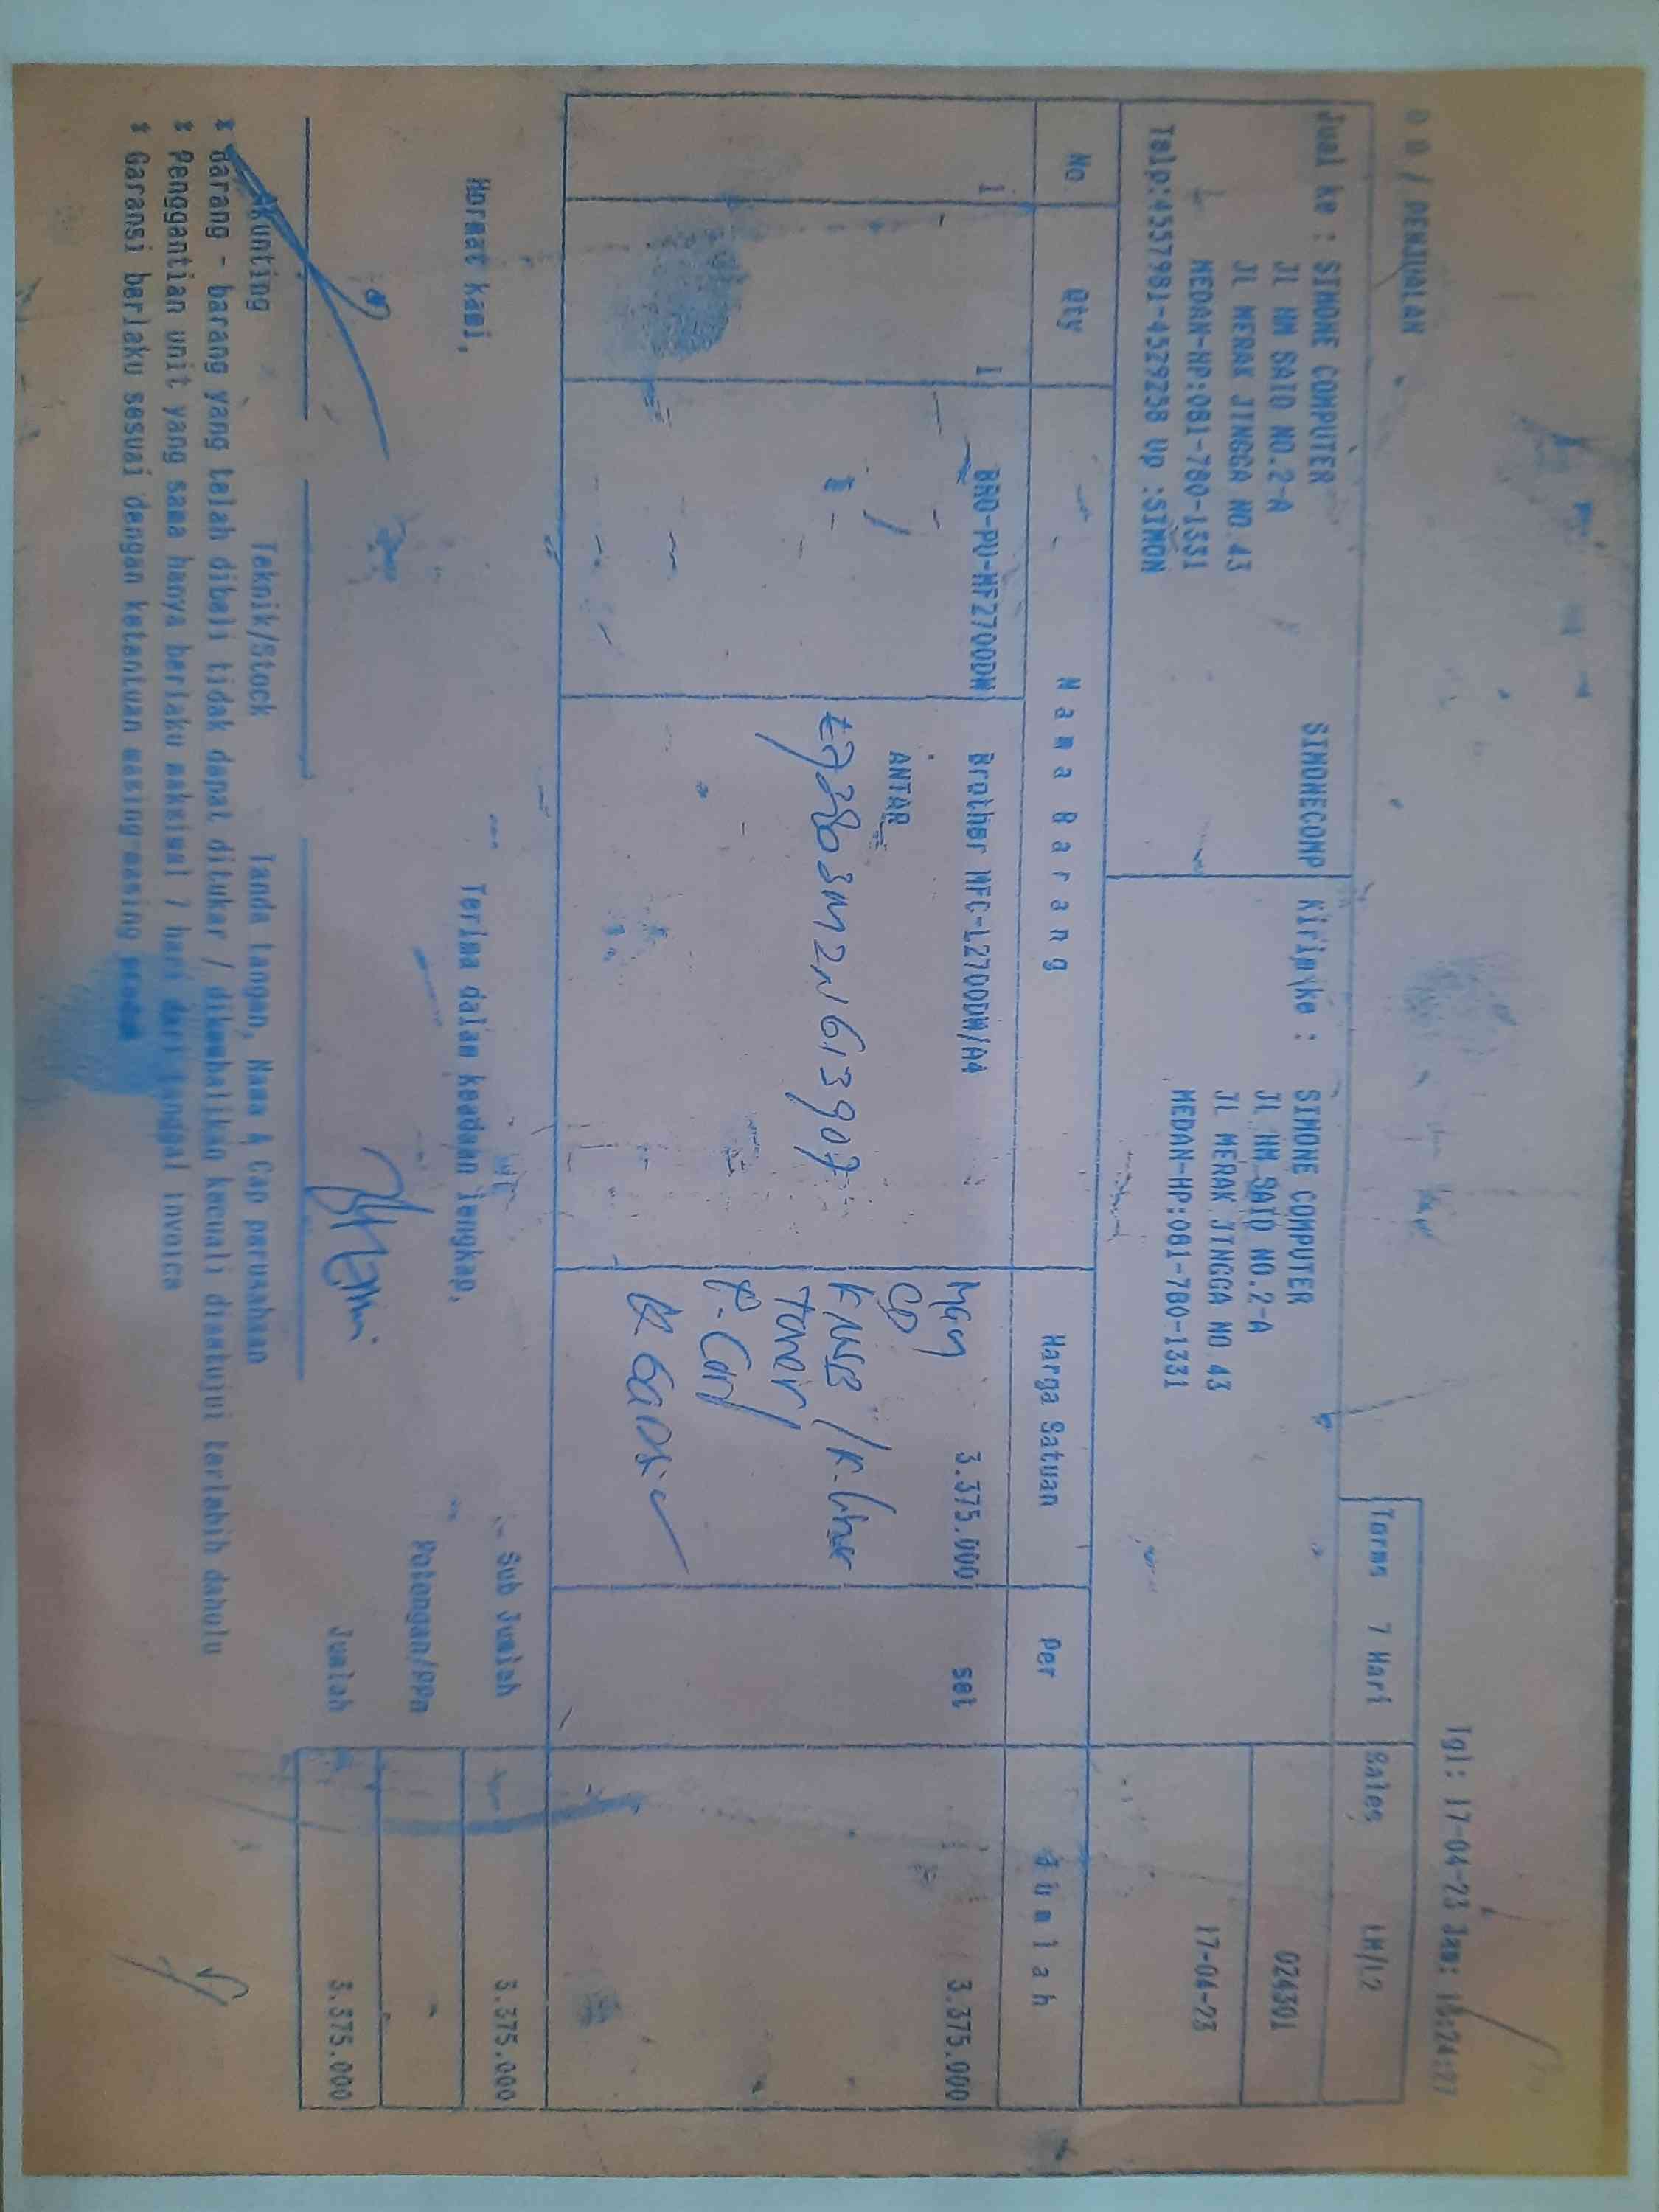 / PENJUALAN
Tgl: 17-04-23 Jam:
Terms 7 Hari Sales LM/L2
Jual ke : SIMONE COMPUTER SIMONECOMP
Jl HM SAID NO.2-A
Jl MERAK JINGGA NO 43
MEDAN-HP:081-780-1331
Telp:4557981-4529258 Up :SIMON
Kirim ke : SIMONE COMPUTER
Jl HM SAID NO.2-A
Jl MERAK JINGGA NO 43
MEDAN-HP:081-780-1331
024301
17-04-23
No Qty Nama Barang Harga Satuan Per Jumlah
1 1 BRO-PU-MF2700DW Brother MFC-L2700DW/A4 3.375.000 set 3.375.000
ANTAR
CD
toner
Hormat kami, Terima dalam keadaan lengkap,
Sub Jumlah 3.375.000
Potongan/PPn
Jumlah 3.375.000
Akunting Teknik/Stock Tanda tangan, Nama & Cap perusahaan
* Barang - barang yang telah dibeli tidak dapat ditukar / dikembalikan kecuali disetujui terlebih dahulu
* Penggantian unit yang sama hanya berlaku maksimal 7 hari dari tanggal invoice
* Garansi berlaku sesuai dengan ketentuan masing-masing produk